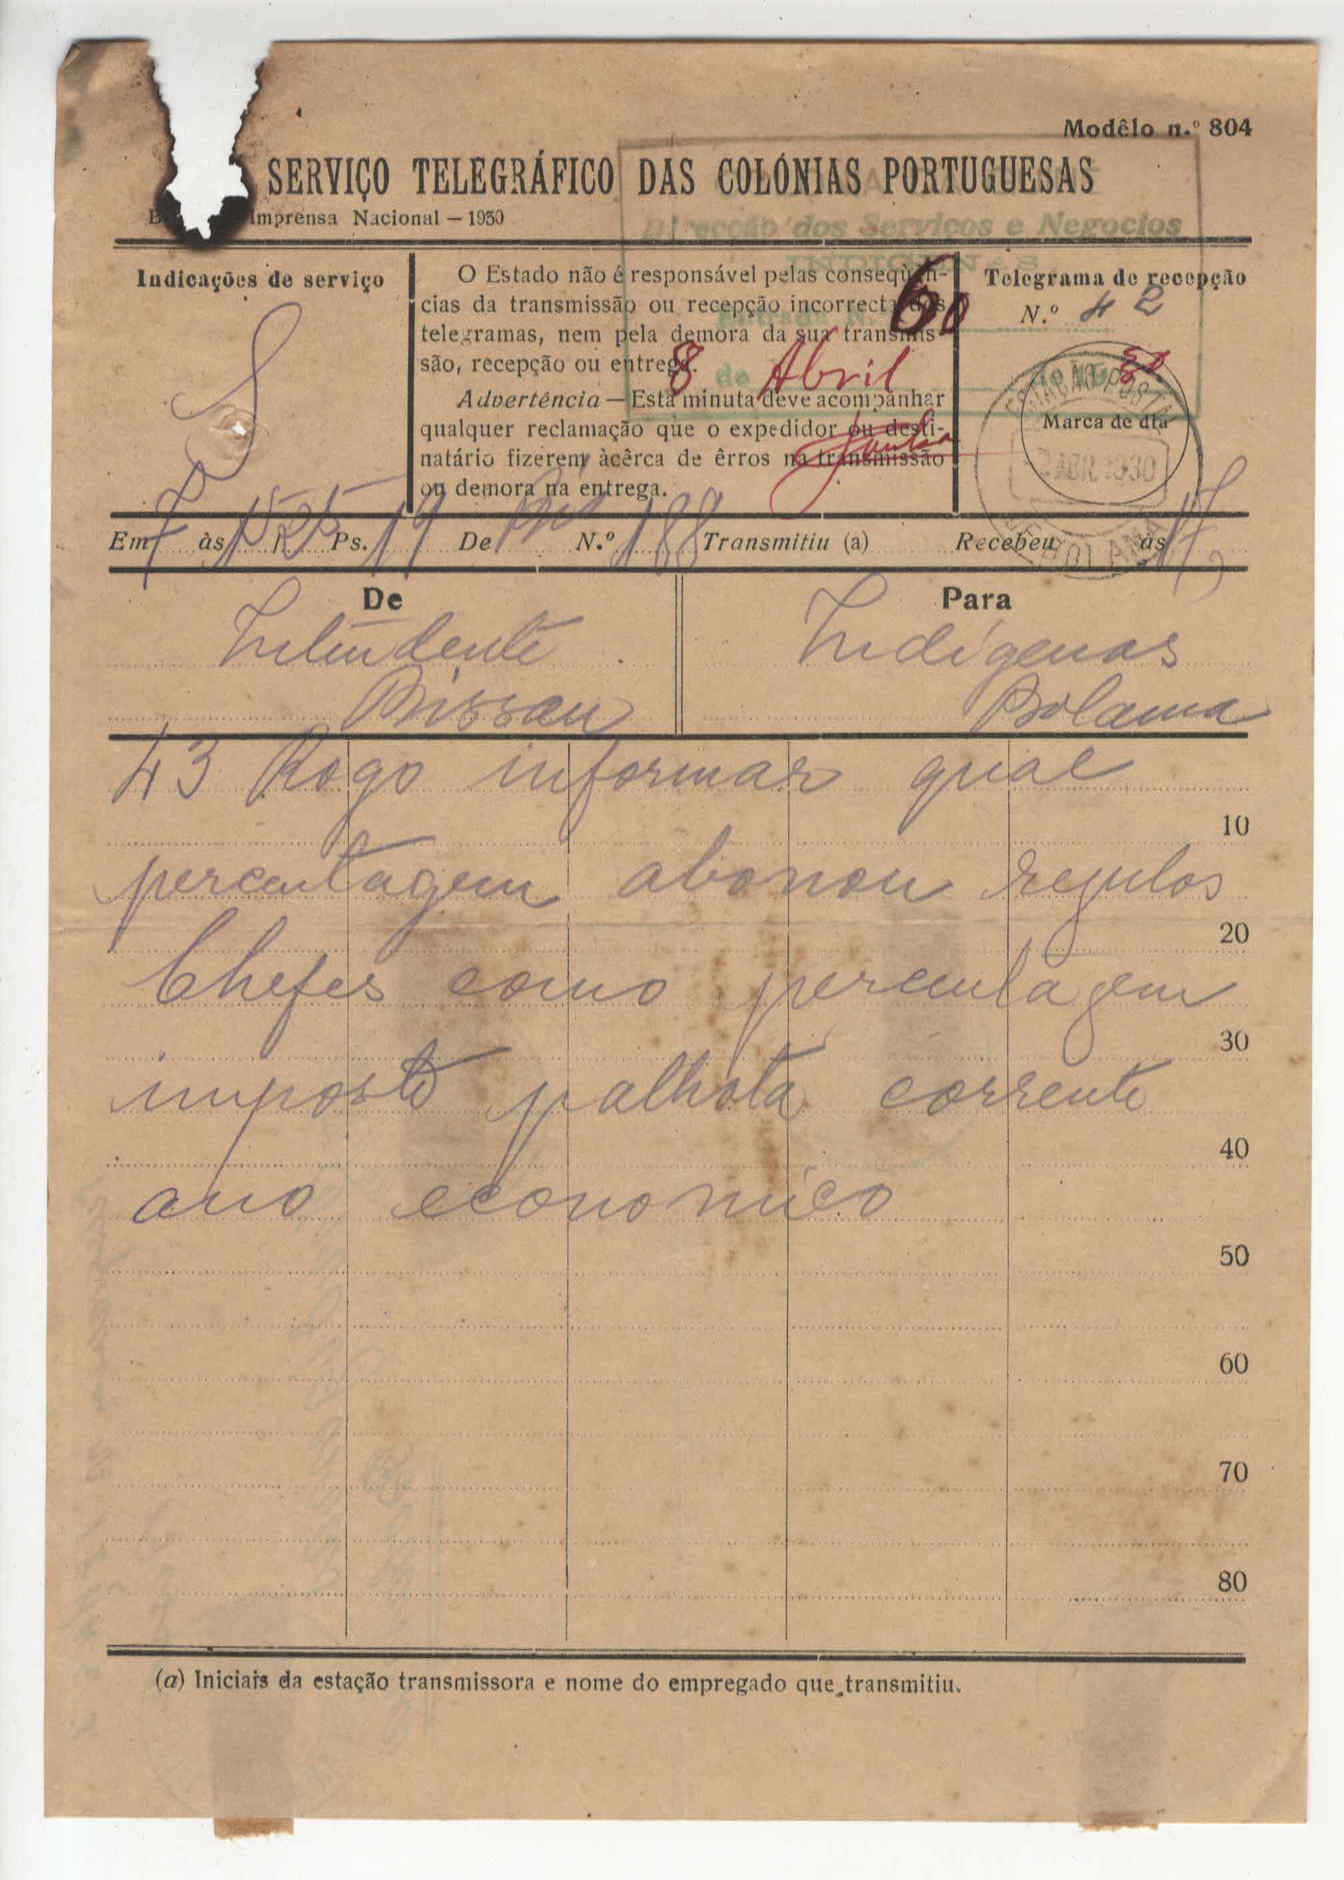 Modêlo n.º 804
SERVIÇO TELEGRÁFICO DAS COLÓNIAS PORTUGUESAS
Imprensa Nacional — 1930
Direcção dos Serviços e Negocios
INDIGENAS
60
8 de Abril
Indicações de serviço
S
O Estado não é responsável pelas conseqüên-
cias da transmissão ou recepção incorrecta dos
telegramas, nem pela demora da sua transmis-
são, recepção ou entrega.
Advertência — Esta minuta deve acompanhar
qualquer reclamação que o expedidor ou desti-
natário fizerem àcêrca de êrros na transmissão
ou demora na entrega.
Telegrama de recepção
N.º 42
30
Marca de dia
ABR. 1930
BOLAMA
Em 7 às 1525 Ps. 19 De N.º 188 Transmitiu (a) Recebeu às 17,
De
Intendente
Bissau
Para
Indígenas
Bolama
43 Rogo informar qual
10
percentagem abonou regulos
20
Chefes como percentagem
30
imposto palhota corrente
40
ano economico
50
60
70
80
(a) Iniciais da estação transmissora e nome do empregado que transmitiu.